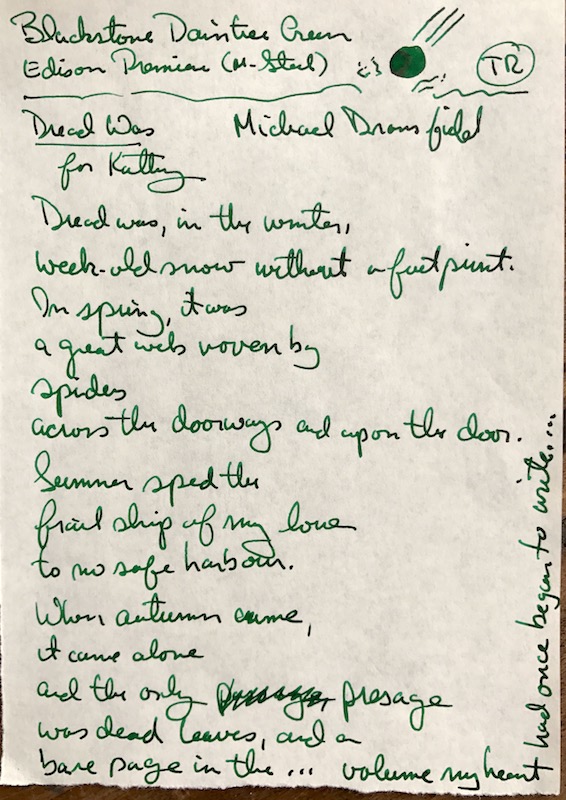 Blackstone Daintree Green
Edison Premiere (M-Steel)
TR
Dread Was Michael Dransfield
for Kathy
Dread was, in the winter,
week-old snow without a footprint.
In spring, it was
a great web woven by
spiders
across the doorways and upon the door.
Summer sped the
frail ship of my love
to no safe harbour.
When autumn came,
it came alone
and the only presage
was dead leaves, and a
bare page in the ... volume my heart
had once begun to write....